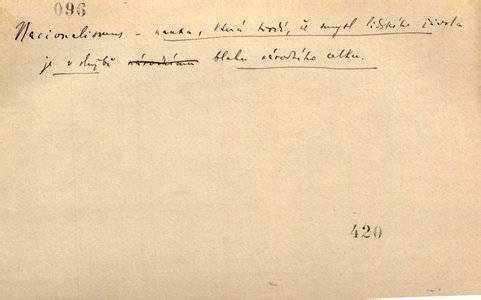 096
Nacionalismus – nauka, která tvrdí, že smysl lidského života
je v službě národnímu blahu národního celku.
420